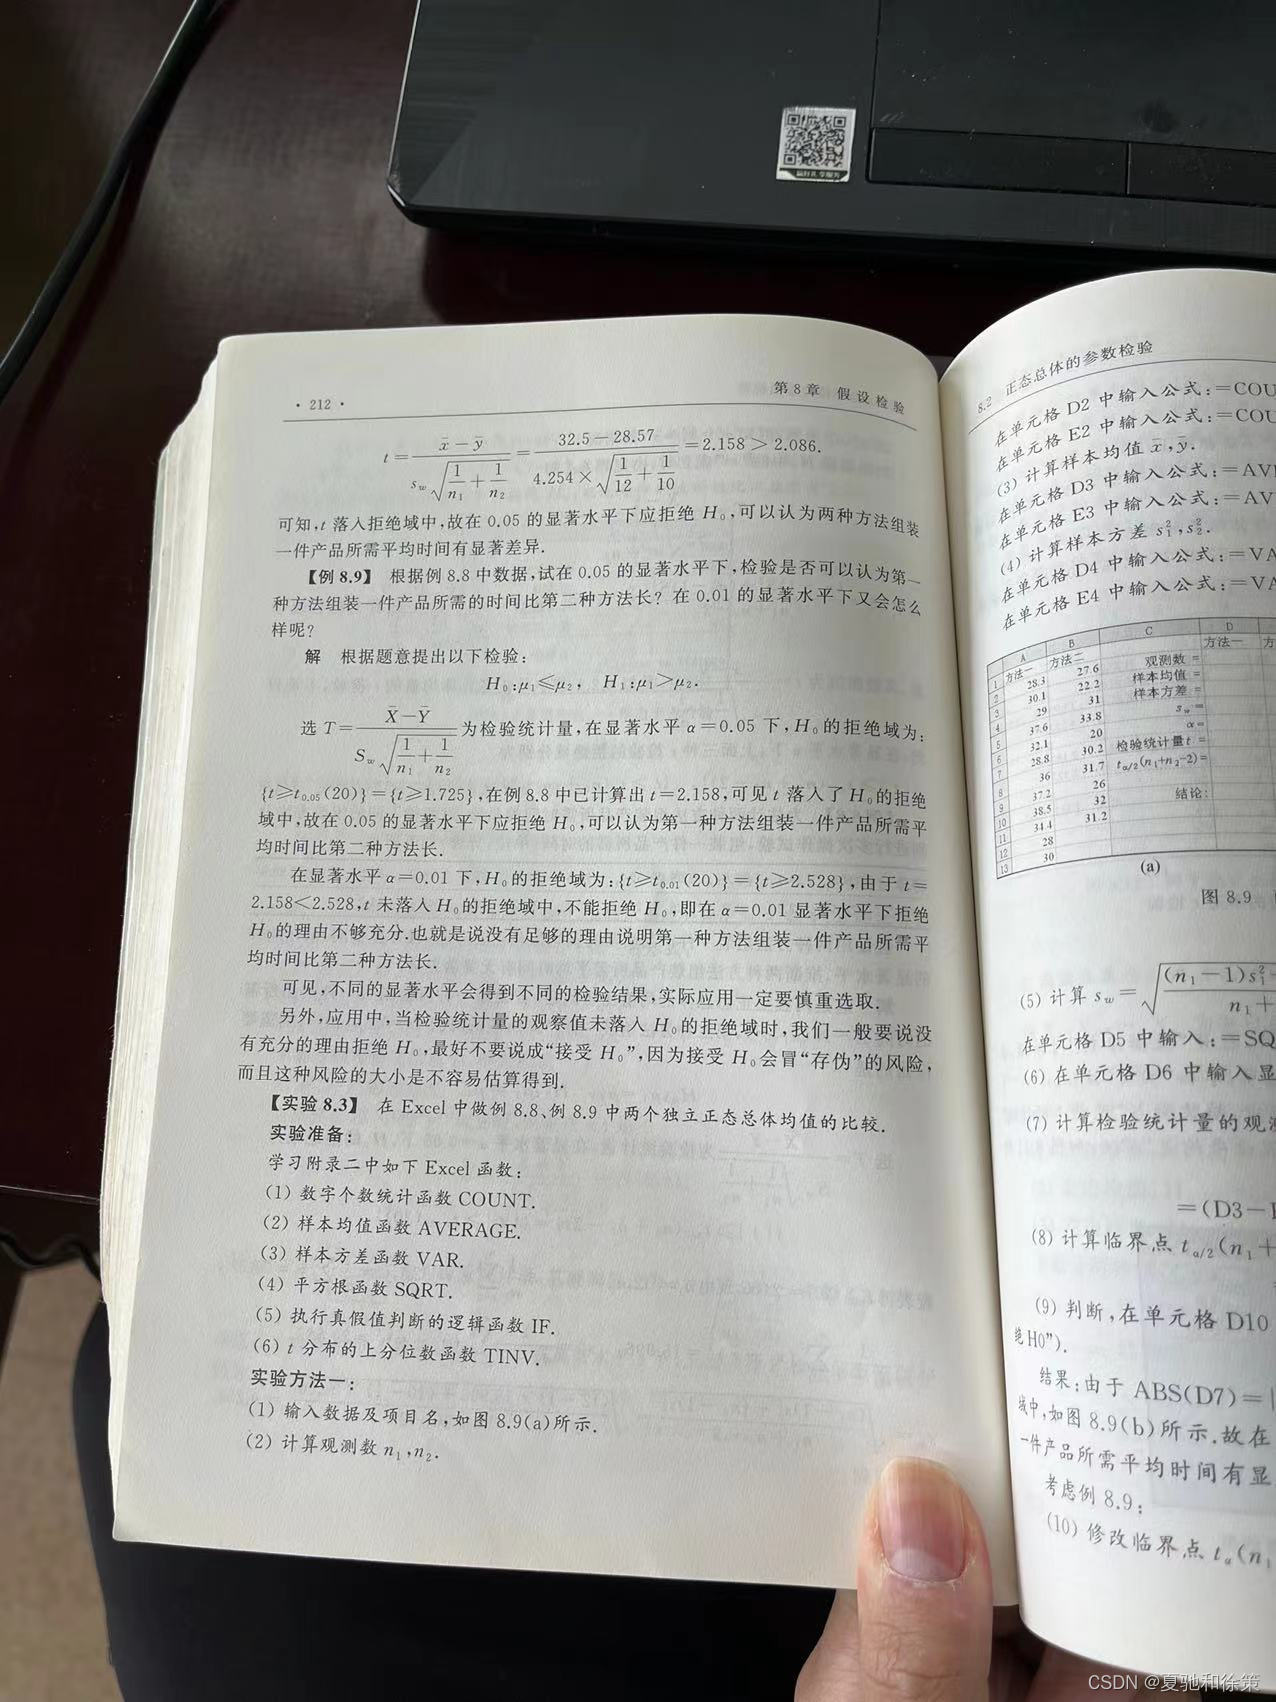 赢好礼 享服务
· 212 ·
第8章 假设检验
t = (x̄-ȳ)/(s_w√(1/n₁+1/n₂)) = (32.5-28.57)/(4.254×√(1/12+1/10)) = 2.158 > 2.086.
可知,t 落入拒绝域中,故在 0.05 的显著水平下应拒绝 H₀,可以认为两种方法组装
一件产品所需平均时间有显著差异.
【例 8.9】 根据例 8.8 中数据,试在 0.05 的显著水平下,检验是否可以认为第一
种方法组装一件产品所需的时间比第二种方法长? 在 0.01 的显著水平下又会怎么
样呢?
解 根据题意提出以下检验:
H₀:μ₁⩽μ₂, H₁:μ₁>μ₂.
选 T = (X̄-Ȳ)/(S_w√(1/n₁+1/n₂)) 为检验统计量,在显著水平 α=0.05 下,H₀的拒绝域为:
{t⩾t₀.₀₅(20)}={t⩾1.725},在例 8.8 中已计算出 t=2.158,可见 t 落入了 H₀的拒绝
域中,故在 0.05 的显著水平下应拒绝 H₀,可以认为第一种方法组装一件产品所需平
均时间比第二种方法长.
在显著水平 α=0.01 下,H₀的拒绝域为:{t⩾t₀.₀₁(20)}={t⩾2.528},由于 t=
2.158<2.528,t 未落入H₀的拒绝域中,不能拒绝 H₀,即在 α=0.01 显著水平下拒绝
H₀的理由不够充分.也就是说没有足够的理由说明第一种方法组装一件产品所需平
均时间比第二种方法长.
可见,不同的显著水平会得到不同的检验结果,实际应用一定要慎重选取.
另外,应用中,当检验统计量的观察值未落入 H₀的拒绝域时,我们一般要说没
有充分的理由拒绝 H₀,最好不要说成“接受 H₀”,因为接受 H₀会冒“存伪”的风险,
而且这种风险的大小是不容易估算得到.
【实验 8.3】 在 Excel 中做例 8.8、例 8.9 中两个独立正态总体均值的比较.
实验准备:
学习附录二中如下 Excel 函数:
(1) 数字个数统计函数 COUNT.
(2) 样本均值函数 AVERAGE.
(3) 样本方差函数 VAR.
(4) 平方根函数 SQRT.
(5) 执行真假值判断的逻辑函数 IF.
(6) t 分布的上分位数函数 TINV.
实验方法一:
(1) 输入数据及项目名,如图 8.9(a)所示.
(2) 计算观测数 n₁,n₂.
8.2 正态总体的参数检验
在单元格 D2 中输入公式:=COU
在单元格 E2 中输入公式:=COU
(3) 计算样本均值 x̄,ȳ.
在单元格 D3 中输入公式:=AVE
在单元格 E3 中输入公式:=AV
(4) 计算样本方差 s₁²,s₂².
在单元格 D4 中输入公式:=VA
在单元格 E4 中输入公式:=VA
A B C D
1 方法一 方法二 方法一 方
2 28.3 27.6 观测数 =
3 30.1 22.2 样本均值 =
4 29 31 样本方差 =
5 37.6 33.8 s_w =
6 32.1 20 α =
7 28.8 30.2 检验统计量t =
8 36 31.7 t_α/2(n₁+n₂-2)=
9 37.2 26
10 38.5 32 结论:
11 34.4 31.2
12 28
13 30
(a)
图 8.9
(5) 计算 s_w = √((n₁-1)s₁² / n₁+
在单元格 D5 中输入:=SQ
(6) 在单元格 D6 中输入显
(7) 计算检验统计量的观测
=(D3-
(8) 计算临界点 t_α/2(n₁+
(9) 判断,在单元格 D10
绝 H0”).
结果:由于 ABS(D7)=|
域中,如图 8.9(b)所示.故在
一件产品所需平均时间有显
考虑例 8.9:
(10) 修改临界点 t_α(n₁
CSDN @夏驰和徐策